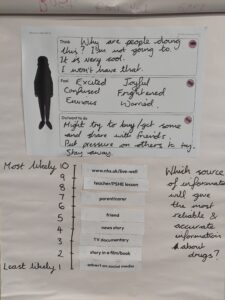 Think
Why are people doing
this? I'm not going to.
It is very cool.
I won't have that.
Feel
Excited Joyful
Confused Frightened
Envious Worried.
Do/want to do
Might try to buy/get some
and share with friends.
Put pressure on others to try.
Stay away.
Most likely 10 www.nhs.uk/live-well/
9
8 teacher/PSHE lesson
7 parent/carer
6
5 friend
4 news story
3 TV documentary
2 story in a film/book
Least likely 1 advert on social media
Which source
of information
will give
the most
reliable &
accurate
information
about
drugs?